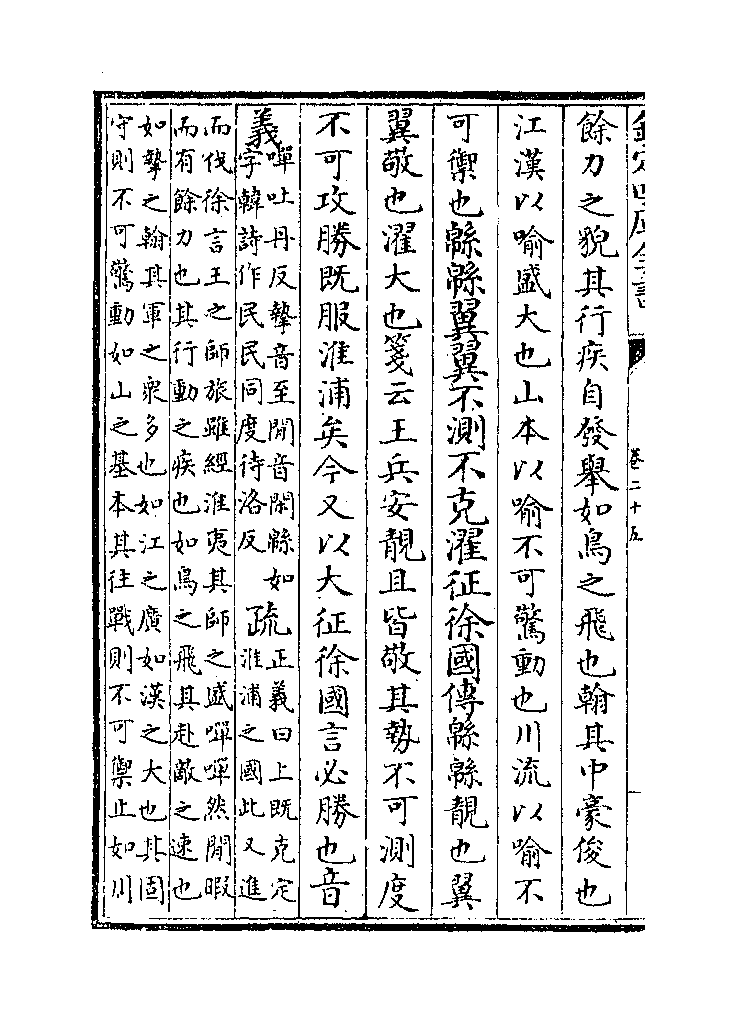 欽定四庫全書
卷二十五
餘力之貌其行疾自發舉如鳥之飛也翰其中豪俊也
江漢以喻盛大也山本以喻不可驚動也川流以喻不
可禦也緜緜翼翼不測不克濯征徐國傳緜緜靚也翼
翼敬也濯大也箋云王兵安靚且皆敬其勢不可測度
不可攻勝既服淮浦矣今又以大征徐國言必勝也音
義嘽吐丹反摯音至閒音閑緜如
字韓詩作民民同度待洛反
疏正義曰上既克定
淮浦之國此又進
而伐徐言王之師旅雖經淮夷其師之盛嘽嘽然閒暇
而有餘力也其行動之疾也如鳥之飛其赴敵之速也
如摯之翰其軍之衆多也如江之廣如漢之大也其固
守則不可驚動如山之基本其往戰則不可禦止如川